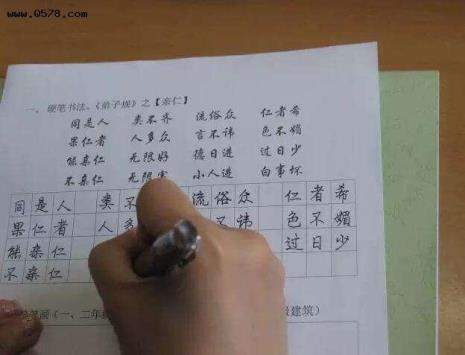 www.0578.com
一、硬笔书法、《弟子规》之【亲仁】
同是人 类不齐 流俗众 仁者希
果仁者 人多众 言不讳 色不媚
能亲仁 无限好 德日进 过日少
不亲仁 无限害 小人进 百事坏
同是人 类不 流俗众 仁者希
果仁者 人多 讳 色不媚
能亲仁 过日少
不亲仁
笔画(一、二年级 建筑)